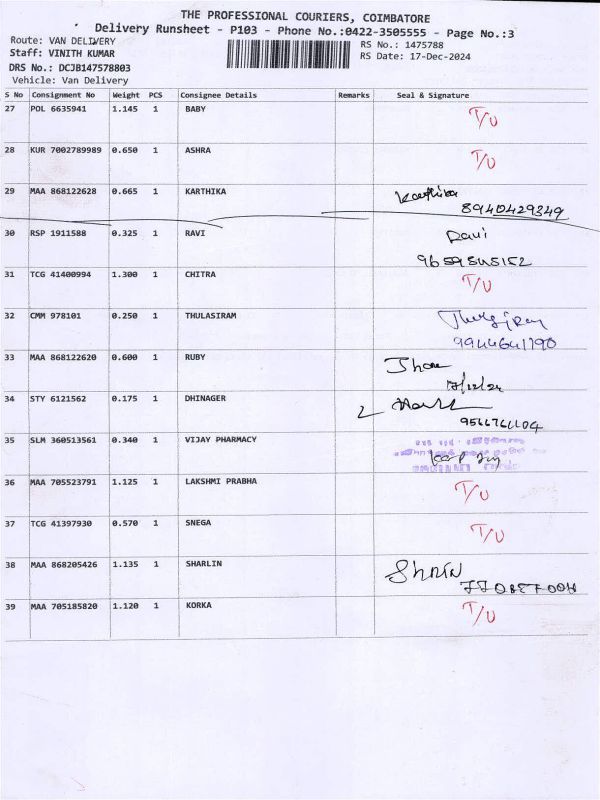 THE PROFESSIONAL COURIERS, COIMBATORE
Delivery Runsheet - P103 - Phone No.:0422-3505555 - Page No.:3
Route: VAN DELIVERY
RS No.: 1475788
Staff: VINITH KUMAR
RS Date: 17-Dec-2024
DRS No.: DCJB147578803
Vehicle: Van Delivery
S No Consignment No Weight PCS Consignee Details Remarks Seal & Signature
27 POL 6635941 1.145 1 BABY T/U
28 KUR 7002789989 0.650 1 ASHRA T/U
29 MAA 868122628 0.665 1 KARTHIKA Karthika
8940429349
30 RSP 1911588 0.325 1 RAVI Ravi
9659545152
31 TCG 41400994 1.300 1 CHITRA T/U
32 CMM 978101 0.250 1 THULASIRAM
9944641790
33 MAA 868122620 0.600 1 RUBY
17/12/24
34 STY 6121562 0.175 1 DHINAGER
9566761104
35 SLM 360513561 0.340 1 VIJAY PHARMACY
36 MAA 705523791 1.125 1 LAKSHMI PRABHA T/U
37 TCG 41397930 0.570 1 SNEGA T/U
38 MAA 868205426 1.135 1 SHARLIN
39 MAA 705185820 1.120 1 KORKA T/U